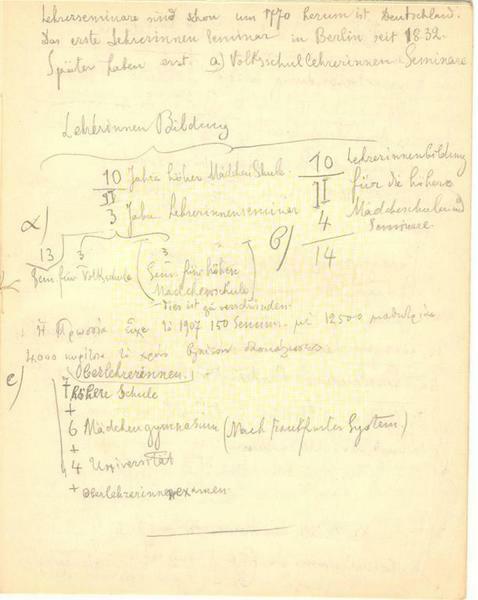 Lehrerseminare sind schon um 1770 herum ist Deutschland.
Das erste Lehrerinnen Seminar in Berlin seit 1832.
Später haben erst a) Volksschullehrerinnen Seminare
Lehrerinnen Bildung
α)
10 Jahre höher Mädchen Schule.
II
3 Jahre Lehrerinnenseminar
13
3
Sem. für Volkschule
3
(Sem. für höhere
Mädchenschule)
dies ist zu verschwinden.
β)
10 Lehrerinnenbildung
II für die höhere
4 Mädchenschulen und
14 Seminare.
Ἡ Πρωσσία εἶχε τὸ 1907 150 Semin. μὲ 12500 μαθητρίας
4000 κορίτσια τὸ χρόνο
c)
Oberlehrerinnen.
7 höhere Schule
+
6 Mädchengymnasium (Nach Frankfurter System.)
+
4 Universität
+ Oberlehrerinnenexamen.